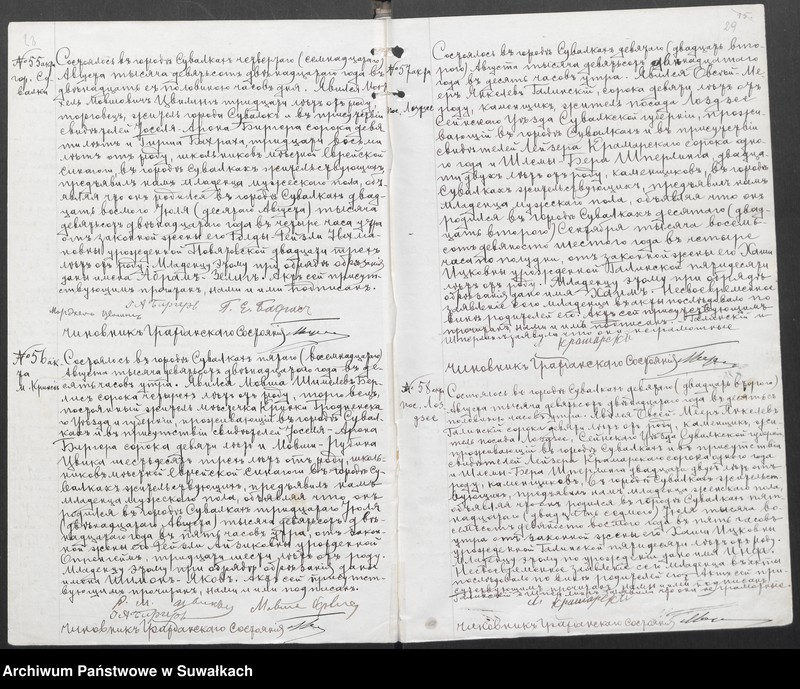 28
№ 55
гор. Су
валки
Состоялось въ городѣ Сувалкахъ четвертаго (семнадцатаго)
Августа тысяча девятьсотъ двѣнадцатаго года въ
двѣнадцать съ половиною часовъ дня. Явился
торговецъ, житель города Сувалокъ и въ присутствіи
свидѣтелей Іоселя-Арона Биргера сорока девя
ти лѣтъ и Гирша Бахраха, тридцати восьми
лѣтъ отъ роду, школьниковъ мѣстной Еврейской
синагоги, въ городѣ Сувалкахъ жительствующихъ,
предъявилъ намъ младенца мужескаго пола, объ
являя что онъ родился въ городѣ Сувалкахъ двад
цать восьмого Іюля (десятаго Августа) тысяча
девятьсотъ двѣнадцатаго года въ четыре часа утра
отъ законной жены его Гольды-Фейги
урожденной двадцати трехъ
лѣтъ отъ роду. Младенцу этому при обрядѣ обрѣзанія
дано имя Актъ сей присут
ствующимъ прочитанъ, нами и ими подписанъ.
Чиновникъ Гражданскаго Состоянія
№ 56 ак
та
Состоялось въ городѣ Сувалкахъ пятаго (восемнадцатаго)
Августа тысяча девятьсотъ двѣнадцатаго года въ де
сять часовъ утра. Явился Мовша
сорока четырехъ лѣтъ отъ роду, торговецъ,
постоянный житель мѣстечка Крынки Гродненска
го уѣзда и губерніи, проживающій въ городѣ Сувал
кахъ и въ присутствіи свидѣтелей Іоселя-Арона
Биргера сорока девяти лѣтъ и
лѣтъ отъ роду, школь
никовъ мѣстной Еврейской синагоги въ городѣ Су
валкахъ жительствующихъ, предъявилъ намъ
младенца мужескаго пола, объявляя что онъ
родился въ городѣ Сувалкахъ тридцатаго Іюля
(двѣнадцатаго Августа) тысяча девятьсотъ двѣ
надцатаго года въ пять часовъ утра, отъ закон
ной жены его урожденной
лѣтъ отъ роду.
Младенцу этому при обрядѣ обрѣзанія дано
имя Шимонъ-Яковъ. Актъ сей присутст
вующимъ прочитанъ, нами и ими подписанъ.
Чиновникъ Гражданскаго Состоянія
29
№ 57 акта
пос. Лоздзее
Состоялось въ городѣ Сувалкахъ девятаго (двадцать вто
рого) Августа тысяча девятьсотъ двѣнадцатаго
года въ десять часовъ утра. Явился Овсей-Ме
еръ Янкелевъ Галинскій, сорока девяти лѣтъ отъ
роду, каменщикъ, житель посада Лоздзее
Сейнскаго уѣзда Сувалкской губерніи, прожи
вающій въ городѣ Сувалкахъ и въ присутствіи
свидѣтелей Лейзера Крамарскаго сорока одно
го года и Шлемы-Бера Штерлинга, двадца
ти двухъ лѣтъ отъ роду, каменщиковъ, въ городѣ
Сувалкахъ жительствующихъ, предъявилъ намъ
младенца мужескаго пола, объявляя что онъ
родился въ городѣ Сувалкахъ десятаго (двад
цать второго) Сентября тысяча восемь
сотъ девяносто шестого года въ четыре
часа по полудни, отъ законной жены его Хаши
Ицковны урожденной Галинской пятидесяти
лѣтъ отъ роду. Младенцу этому при обрядѣ
обрѣзанія дано имя Хаимъ. Несвоевременное
заявленіе сего младенца въ акты послѣдовало по
винѣ родителей его. Актъ сей присутствующимъ
прочитанъ нами и ими подписанъ. Галинскій и
Штерлингъ заявили что они неграмотные
Чиновникъ Гражданскаго Состоянія
№ 58 акта
пос. Лоз
дзее
Состоялось въ городѣ Сувалкахъ девятаго (двадцать второго)
Августа тысяча девятьсотъ двѣнадцатаго года въ десять съ
половиною часовъ утра. Явился Овсей-Мееръ Янкелевъ
Галинскій сорока девяти лѣтъ отъ роду, каменщикъ, жи
тель посада Лоздзее, Сейнскаго уѣзда Сувалкской губерніи
проживающій въ городѣ Сувалкахъ и въ присутствіи
свидѣтелей Лейзера Крамарскаго сорока одного года
и Шлемы-Бера Штерлинга двадцати двухъ лѣтъ отъ
роду, каменщиковъ, въ городѣ Сувалкахъ жительст
вующихъ, предъявилъ намъ младенца мужескаго пола,
объявляя что онъ родился въ городѣ Сувалкахъ пят
надцатаго (двадцать седьмого) Іюля тысяча во
семьсотъ девяносто восьмого года въ пять часовъ
утра отъ законной жены его Хаши Ицковны
урожденной Галинской пятидесяти лѣтъ отъ роду.
Младенцу этому дано имя
Несвоевременное заявленіе сего младенца въ акты
послѣдовало по винѣ родителей его. Актъ сей при
сутствующимъ прочитанъ, нами и ими подписанъ.
Галинскій и Штерлингъ заявили что они неграмотные.
Чиновникъ Гражданскаго Состоянія
Archiwum Państwowe w Suwałkach